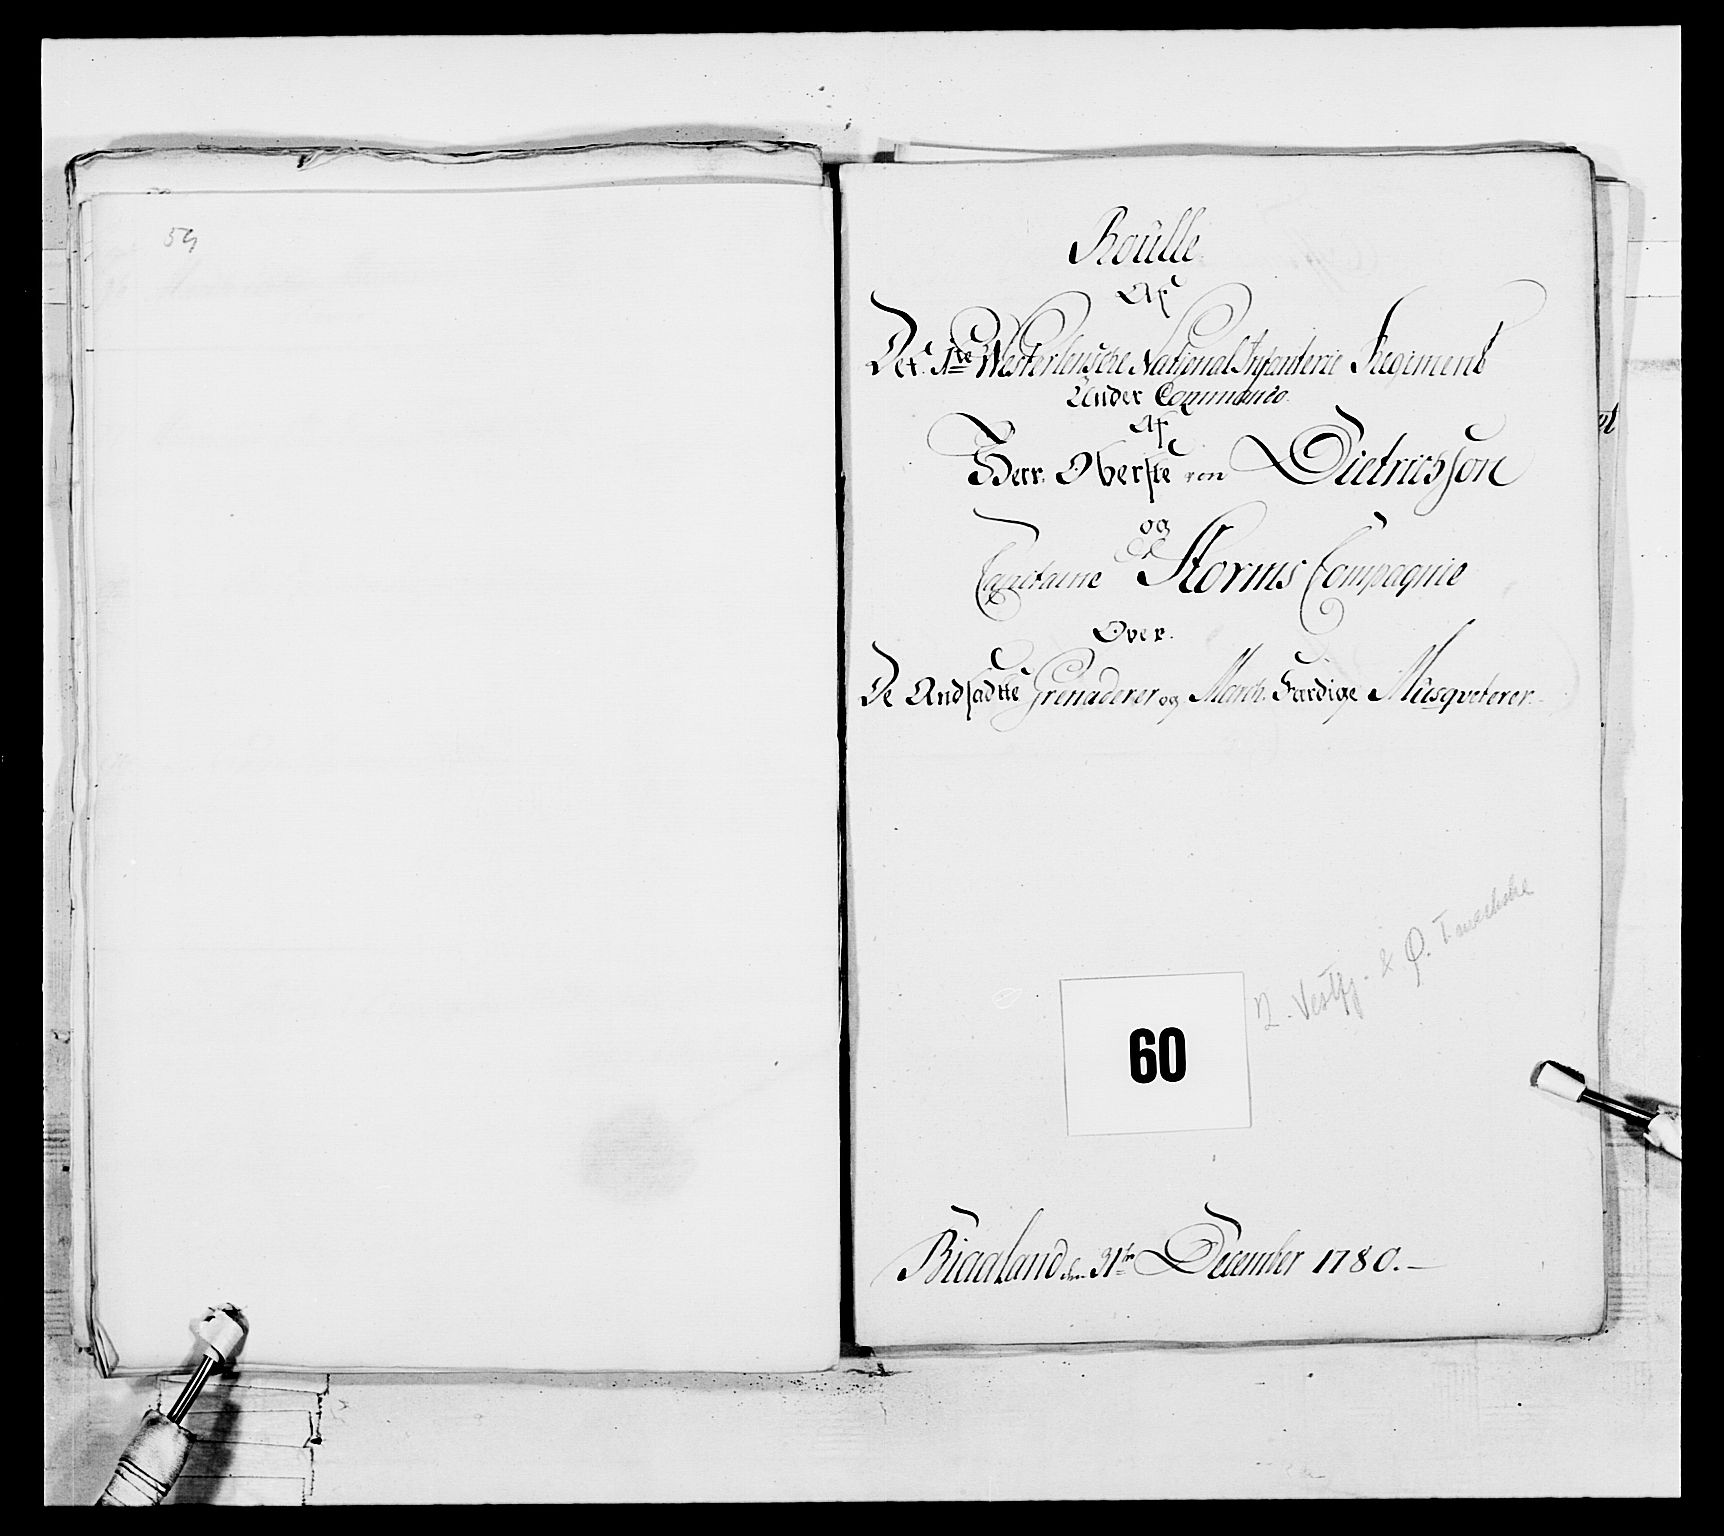 59
Roulle
Af
Det 1ste Westerlensche National Infanterie Regiment
Under Commando.
Af
Herr Oberste von Dietrichson
og
Capitaine Storms Compagnie
Over.
De Ansadtte Grenaderer og March. Færdige Musqveterer.
N. Vestfj. &
60
Biaaland den 31te December 1780.